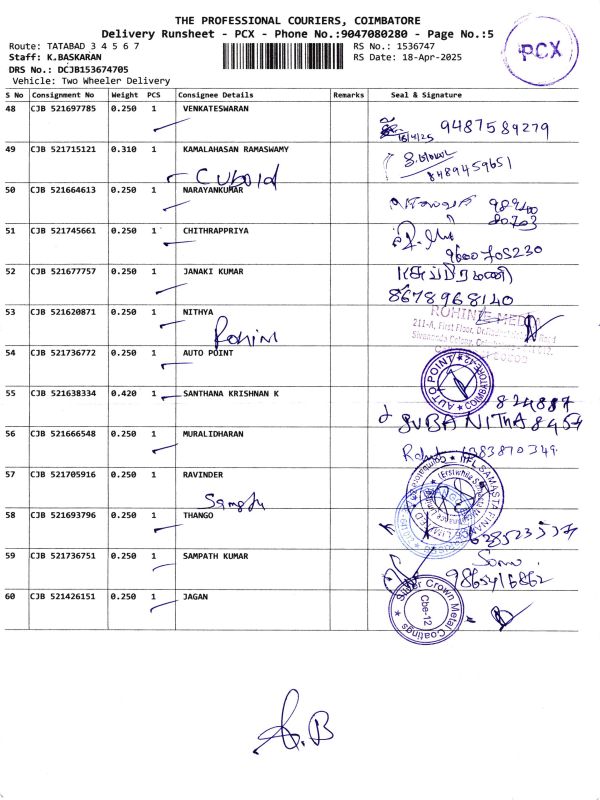 THE PROFESSIONAL COURIERS, COIMBATORE
Delivery Runsheet - PCX - Phone No.:9047080280 - Page No.:5
Route: TATABAD 3 4 5 6 7
RS No.: 1536747
Staff: K.BASKARAN
RS Date: 18-Apr-2025
DRS No.: DCJB153674705
Vehicle: Two Wheeler Delivery
PCX
S No Consignment No Weight PCS Consignee Details Remarks Seal & Signature
48 CJB 521697785 0.250 1 VENKATESWARAN
9487589279
49 CJB 521715121 0.310 1 KAMALAHASAN RAMASWAMY
8489459651
Cuboid
50 CJB 521664613 0.250 1 NARAYANKUMAR
51 CJB 521745661 0.250 1 CHITHRAPPRIYA
9600705230
52 CJB 521677757 0.250 1 JANAKI KUMAR
8678968140
53 CJB 521620871 0.250 1 NITHYA
Rohini
ROHINI
211-A, First Floor,
54 CJB 521736772 0.250 1 AUTO POINT
AUTO POINT COIMBATORE-12
55 CJB 521638334 0.420 1 SANTHANA KRISHNAN K
824887
SUBANITHA 8457
56 CJB 521666548 0.250 1 MURALIDHARAN
57 CJB 521705916 0.250 1 RAVINDER
SAMASTA FINANCE LIMITED
58 CJB 521693796 0.250 1 THANGO
59 CJB 521736751 0.250 1 SAMPATH KUMAR
9865416862
60 CJB 521426151 0.250 1 JAGAN
Silver Crown Metal Coatings
Cbe-12
A.B